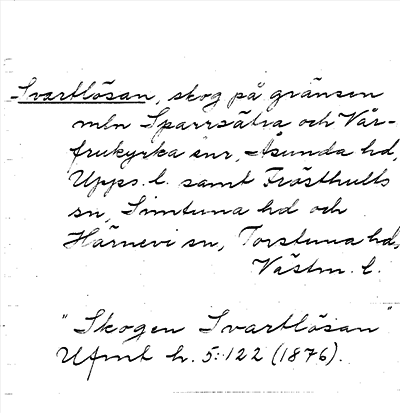 Svartlösan, skog på gränsen
mln Sparrsätra och Vår-
frukyrka snr, Åsunda hd,
Upps. l. samt Frösthults
sn, Simtuna hd och
Härnevi sn, Torstuna hd,
Västm. l.
"Skogen Svartlösan"
Ufmt h. 5:122 (1876).